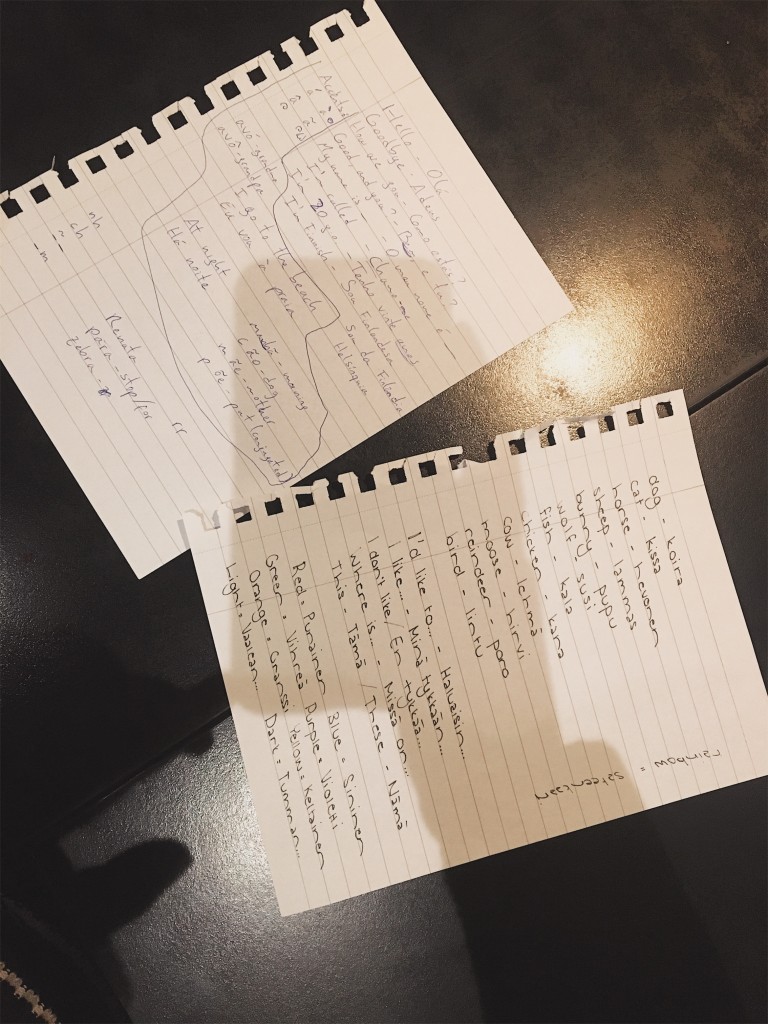 Hello - Olá
Goodbye - Adeus
How are you - Como estás?
Good, and you? - Bem e tu?
My name is - O meu nome é _
I'm called - Chamo-me
I'm 20 y.o. - Tenho vinte anos
I'm Finnish - Sou Finlandesa
Sou da Finlândia
Helsínquia
à
á ã
â
avó - grandma
avô - grandpa
I go to the beach
Eu vou à praia
At night
Há noite
manhã - morning
cão - dog
mãe - mother
põe - put (conjugated)
nh
ch
~
-m
Renata
para - stop/for rr
zebra - r
dog - koira
cat - kissa
horse - hevonen
sheep - lammas
bunny - pupu
wolf - susi
fish - kala
chicken - kana
cow - lehmä
moose - hirvi
reindeer - poro
bird - lintu
I'd like to... - Haluaisin...
I like... - Minä tykkään...
I don't like / En tykkää...
Where is... - Missä on...
This - Tämä / These - Nämä
Red = Punainen Blue = Sininen
Green = Vihreä Purple = Violetti
Orange = Oranssi Yellow = Keltainen
Light = Vaalean... Dark = Tumman...
rainbow = sateenkaari